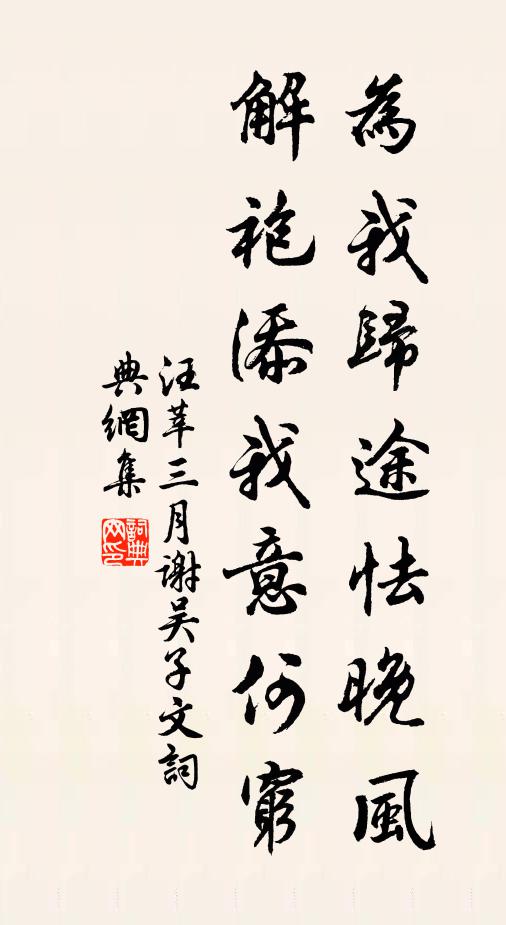 為我歸途怯晚風
解袍添我意何窮
汪莘三月謝吳子文詞
典網集
詞典
网印